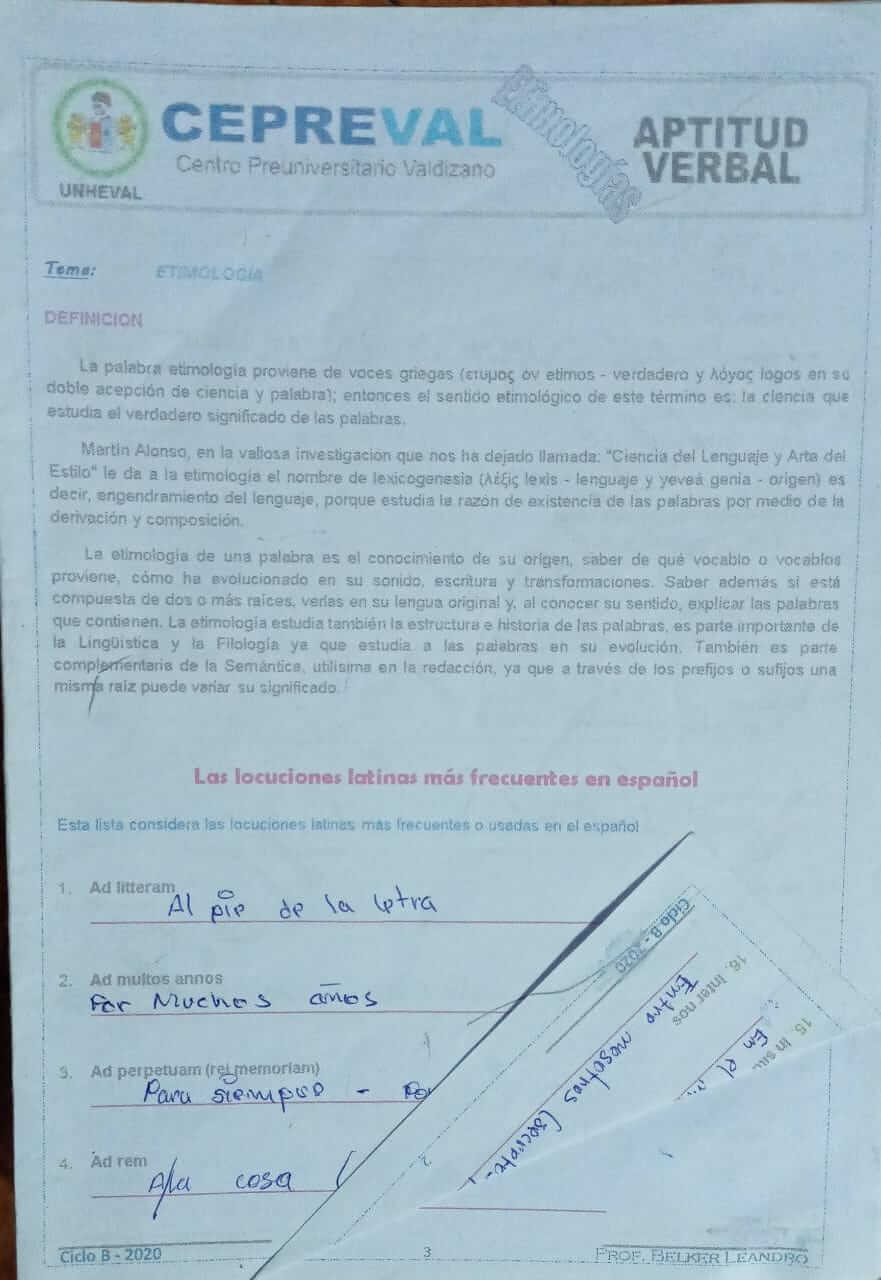 UNHEVAL
CEPREVAL
Centro Preuniversitario Valdizano
Etimologías
APTITUD
VERBAL
Tema: ETIMOLOGÍA
DEFINICION
La palabra etimología proviene de voces griegas (ετυμος ον etimos - verdadero y λόγος logos en su
doble acepción de ciencia y palabra); entonces el sentido etimológico de este término es: la ciencia que
estudia el verdadero significado de las palabras.
Martín Alonso, en la valiosa investigación que nos ha dejado llamada: "Ciencia del Lenguaje y Arte del
Estilo" le da a la etimología el nombre de lexicogenesia (λέξις lexis - lenguaje y γενεά genia - origen) es
decir, engendramiento del lenguaje, porque estudia la razón de existencia de las palabras por medio de la
derivación y composición.
La etimología de una palabra es el conocimiento de su origen, saber de qué vocablo o vocablos
proviene, cómo ha evolucionado en su sonido, escritura y transformaciones. Saber además si está
compuesta de dos o más raíces, verlas en su lengua original y, al conocer su sentido, explicar las palabras
que contienen. La etimología estudia también la estructura e historia de las palabras, es parte importante de
la Lingüística y la Filología ya que estudia a las palabras en su evolución. También es parte
complementaria de la Semántica, utilísima en la redacción, ya que a través de los prefijos o sufijos una
misma raíz puede variar su significado.
Las locuciones latinas más frecuentes en español
Esta lista considera las locuciones latinas más frecuentes o usadas en el español
1. Ad litteram
Al pie de la letra
2. Ad multos annos
Por Muchos años
3. Ad perpetuam (rei memoriam)
Para siempre -
4. Ad rem
A la cosa (
Ciclo B - 2020
16. Inter nos
Entre nosotros
15. In
En el
Ciclo B - 2020
3
PROF. BELKER LEANDRO